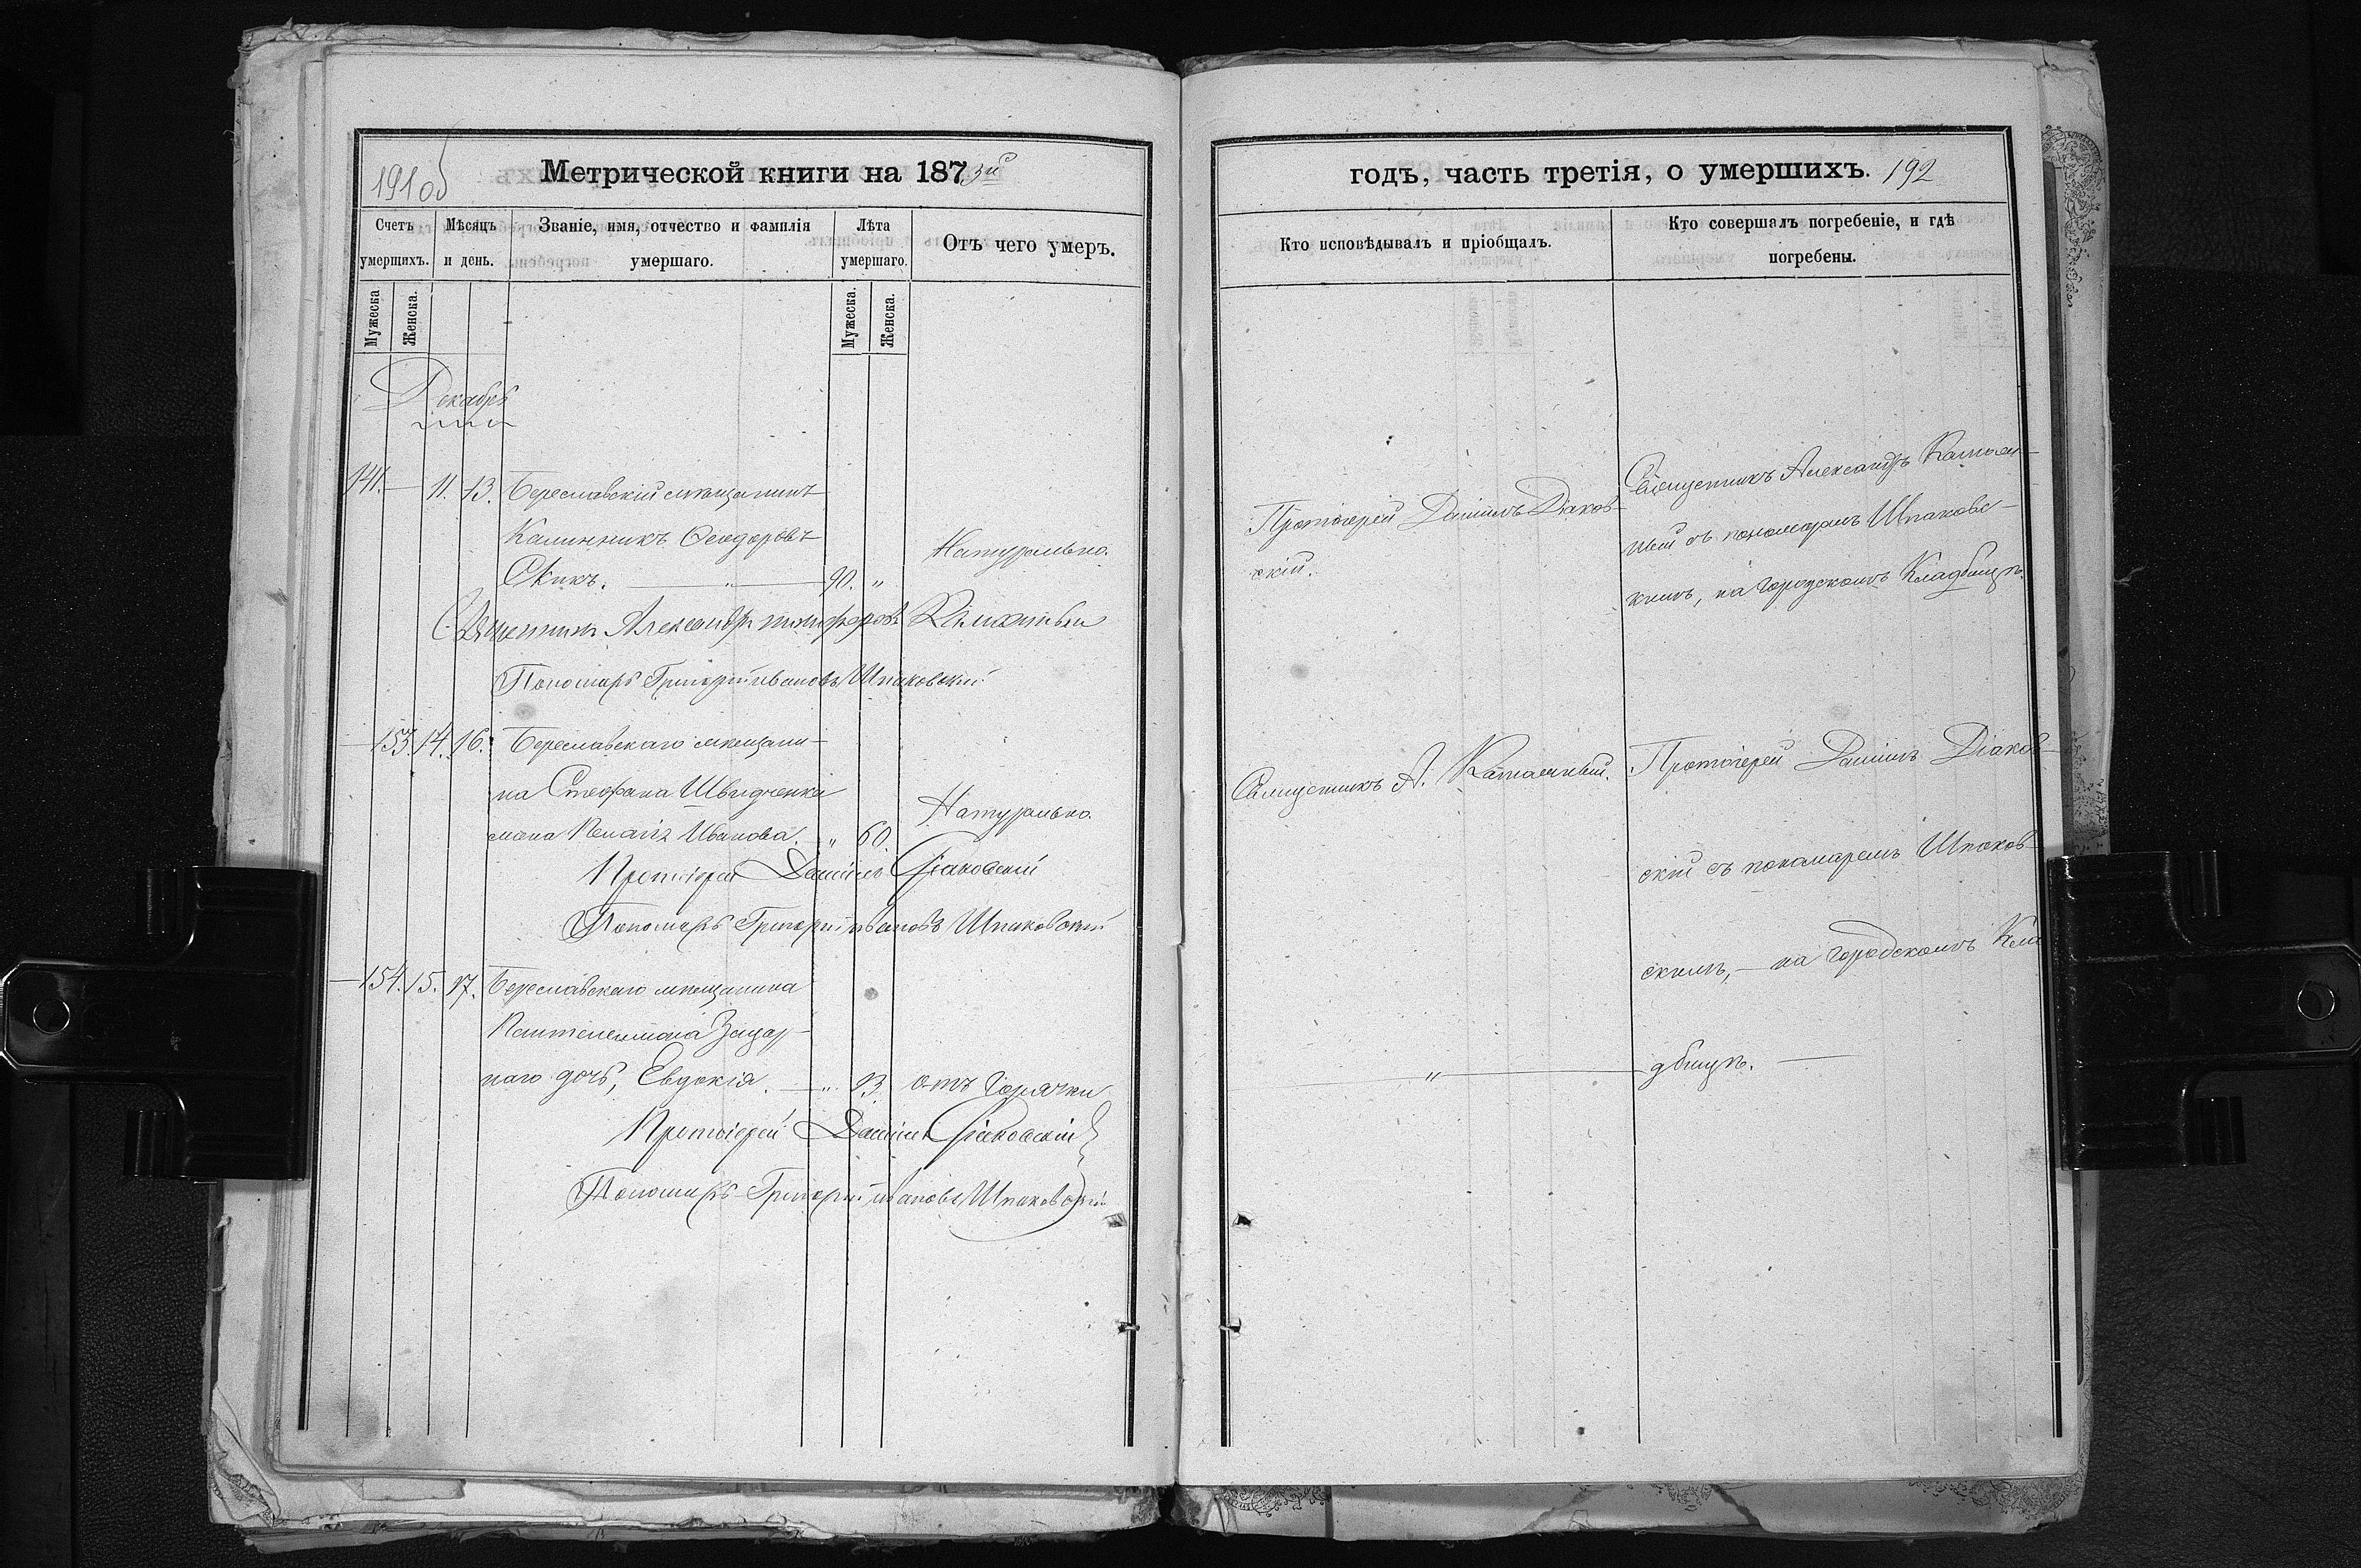 191об
Метрической книги на 1873й
Счетъ умершихъ.
Мѣсяцъ и день.
Званіе, имя, отчество и фамилія умершаго.
Лѣта умершаго.
Отъ чего умеръ.
Мужеска
Женска.
Мужеска.
Женска.
Декабрь
141. — 11. 13. Береславскій мѣщанинъ
Калинникъ Ѳеодоровъ
90. „
Натурально.
Священникъ Александръ
Пономарь Григорій Ивановъ Шпаковскій
— 153. 14. 16. Береславскаго мѣщани-
на Стефана Швидченка
жена Ивановъ „ 60.
Натурально.
Протоіерей Даніилъ Діаковскій
Пономарь Григорій Ивановъ Шпаковскій
— 154. 15. 17. Береславскаго мѣщанина
Пантелеимона
наго дочь, Евдокія. — „
отъ горячки
Протоіерей Даніилъ Діаковскій
Пономарь Григорій Ивановъ Шпаковскій
годъ, часть третія, о умершихъ. 192
Кто исповѣдывалъ и пріобщалъ.
Кто совершалъ погребеніе, и гдѣ
погребены.
Протоіерей Даніилъ Діаков-
скій.
Священникъ Александръ
съ пономаремъ Шпаковс-
кимъ, на городскомъ Кладбищѣ.
Священникъ А.
Протоіерей Даніилъ Діаков-
скій съ пономаремъ Шпаков-
скимъ, — на городскомъ Кла
„
дбищѣ. —